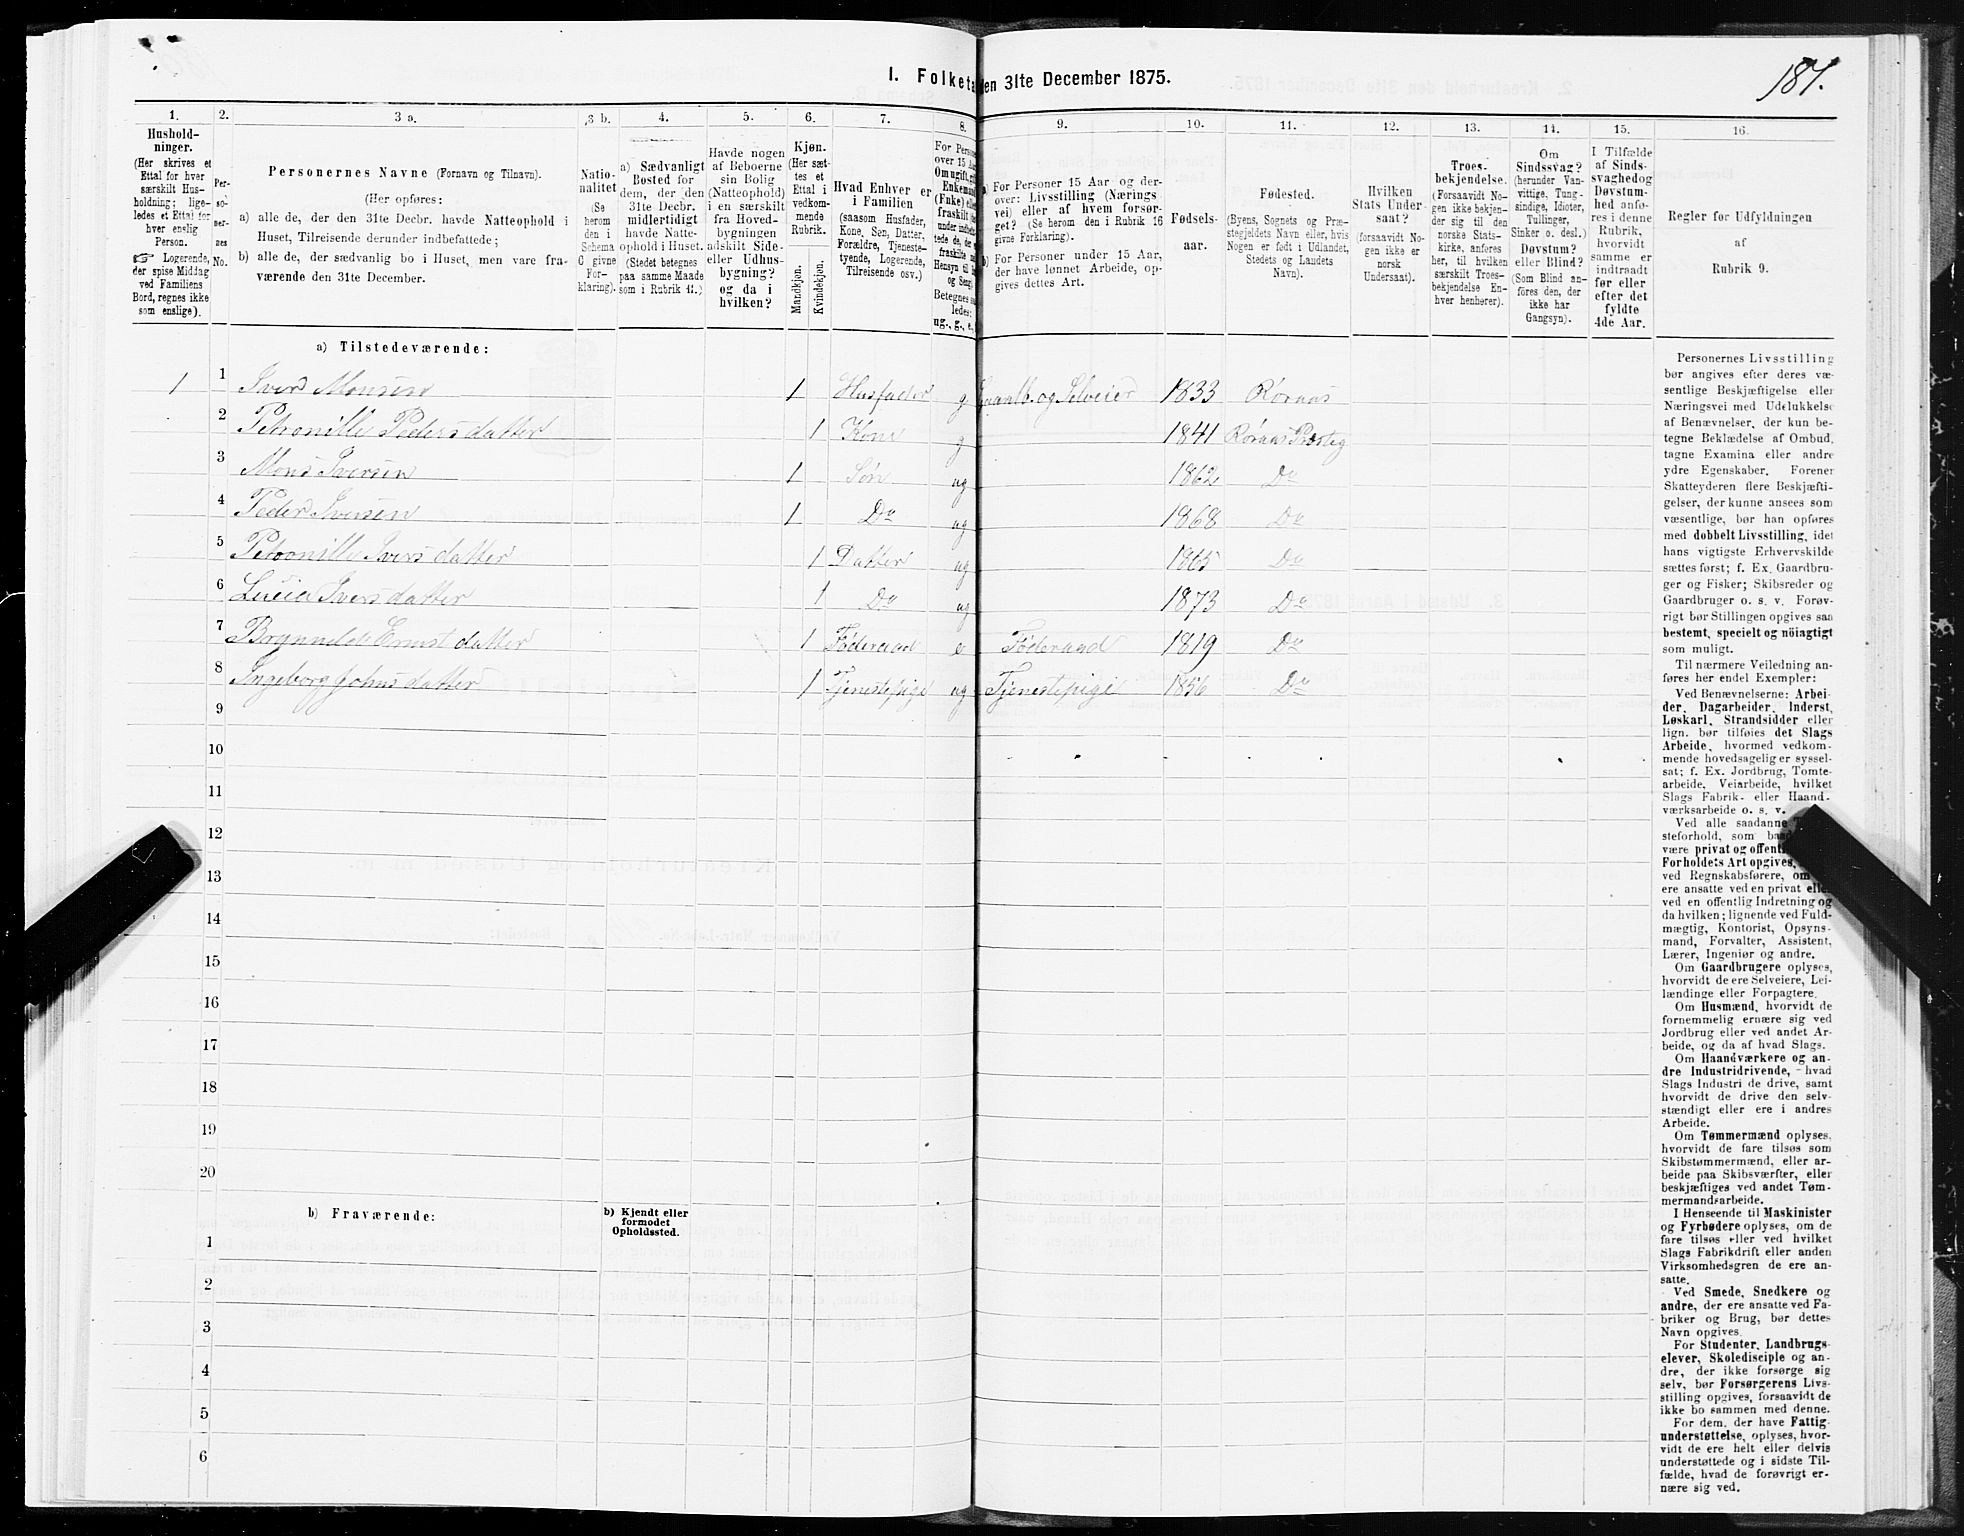 187.
I. Folketa den 31te December 1875.
1. 2. 3 a. 3 b. 4. 5. 6. 7. 8. 9. 10. 11. 12. 13. 14. 15. 16.
Hushold-
ninger.
(Her skrives et
Ettal for hver
særskilt Hus-
holdning; lige-
ledes et Ettal for
hver enslig
Person.
☞ Logerende,
der spise Middag
ved Familiens
Bord, regnes ikke
som enslige).
Per-
so-
ner-
nes
No.
Personernes Navne (Fornavn og Tilnavn).
(Her opføres:
a) alle de, der den 31te Decbr. havde Natteophold i
Huset, Tilreisende derunder indbefattede;
b) alle de, der sædvanlig bo i Huset, men vare fra-
værende den 31te December.
Natio-
nalitet
(Se
herom
den i
Schema
C givne
For-
klaring).
a) Sædvanligt
Bosted for
dem, der den
31te Decbr.
midlertidigt
havde Natte-
ophold i Huset.
(Stedet betegnes
paa samme Maade
som i Rubrik 11.)
Havde nogen
af Beboerne
sin Bolig
(Natteophold)
i en særskilt
fra Hoved-
bygningen
adskilt Side-
eller Udhus-
bygning?
og da i
hvilken?
Kjøn.
(Her sæt-
tes et
Ettal i
vedkom-
mende
Rubrik.
Mandkjøn.
Kvindekjøn.
Hvad Enhver er
i Familien
(saasom Husfader,
Kone, Søn, Datter,
Forældre, Tjeneste-
tyende, Logerende,
Tilreisende osv.)
For Perso
over 15 Aa
Om ugift, gif
Enkemand
(Enke) elle
fraskilt
Hensyn til
og Seng
Betegnes saa
ledes:
ug., g., e.,
a) For Personer 15 Aar og der-
over: Livsstilling (Nærings
vei) eller af hvem forsør-
get? (Se herom den i Rubrik 16
givne Forklaring).
b) For Personer under 15 Aar,
der have lønnet Arbeide, op-
gives dettes Art.
Fødsels-
aar.
Fødested.
(Byens, Sognets og Præ-
stegjeldets Navn eller, hvis
Nogen er født i Udlandet,
Stedets og Landets
Navn).
Hvilken
Stats Under-
saat?
(forsaavidt No-
gen ikke er
norsk
Undersaat).
Troes-
bekjendelse.
(Forsaavidt No-
gen ikke bekjen-
der sig til den
norske Stats-
kirke, anføres
her, til hvilken
særskilt Troes-
bekjendelse En-
hver henhører).
Om
Sindssvag?
(herunder Van-
vittige, Tung-
sindige, Idioter,
Tullinger,
Sinker o. desl.)
Døvstum?
eller Blind?
(Som Blind an-
føres den, der
ikke har
Gangsyn).
I Tilfælde
af Sinds-
svaghed og
Døvstum-
hed anfø-
res i denne
Rubrik,
hvorvidt
samme er
indtraadt
før eller
efter det
fyldte
4de Aar.
Regler for Udfyldningen
af
Rubrik 9.
a) Tilstedeværende:
1 1 Iver Monsen 1 Husfader g Gaardb. og Selveier 1833 Røraas
2 Petronille Pedersdatter 1 Kone g 1841 Røraas Præsteg
3 Mons Iversen 1 Søn ug 1862 Do
4 Peder Iversen 1 Do ug 1868 Do
5 Petronille Iversdatter 1 Datter ug 1865 Do
6 Lucia Iversdatter 1 Do ug 1873 Do
7 Brynnilde Ernstdatter 1 Føderaad e Føderaad 1819 Do
8 Ingeborg Johnsdatter 1 Tjenestepige ug Tjenestepige 1856 Do
9
10
11
12
13
14
15
16
17
18
19
20
b) Fraværende:
b) Kjendt eller
formodet
Opholdssted.
1
2
3
4
5
6
Personernes Livsstilling
bør angives efter deres væ-
sentlige Beskjæftigelse eller
Næringsvei med Udelukkelse
af Benævnelser, der kun be-
tegne Beklædelse af Ombud,
tagne Examina eller andre
ydre Egenskaber. Forener
Skatteyderen flere Beskjæfti-
gelser, der kunne ansees som
væsentlige, bør han opføres
med dobbelt Livsstilling, idet
hans vigtigste Erhvervskilde
sættes først; f. Ex. Gaardbru-
ger og Fisker; Skibsreder og
Gaardbruger o. s. v. Forøv-
rigt bør Stillingen opgives saa
bestemt, specielt og nöiagtigt
som muligt.
Til nærmere Veiledning an-
føres her endel Exempler:
Ved Benævnelserne: Arbei-
der, Dagarbeider, Inderst,
Løskarl, Strandsidder eller
lign. bør tilføies det Slags
Arbeide, hvormed vedkom-
mende hovedsagelig er syssel-
sat; f. Ex. Jordbrug, Tomte-
arbeide, Veiarbeide, hvilket
Slags Fabrik- eller Haand-
værksarbeide o. s. v.
Ved alle saadanne
steforhold, som
være privat og offent
Forholdets Art opgives,
ved Regnskabsførere, om
ere ansatte ved en privat eller
ved en offentlig Indretning og
da hvilken; lignende ved Fuld-
mægtig, Kontorist, Opsyns-
mand, Forvalter, Assistent,
Lærer, Ingeniør og andre.
Om Gaardbrugere oplyses,
hvorvidt de ere Selveiere, Lei-
lændinge eller Forpagtere.
Om Husmænd, hvorvidt de
fornemmelig ernære sig ved
Jordbrug eller ved andet Ar-
beide, og da af hvad Slags.
Om Haandværkere og an-
dre Industridrivende, hvad
Slags Industri de drive, samt
hvorvidt de drive den selv-
stændigt eller ere i andres
Arbeide.
Om Tømmermænd oplyses,
hvorvidt de fare tilsøs som
Skibstømmermænd, eller ar-
beide paa Skibsværfter, eller
beskjæftiges ved andet Tøm-
mermandsarbeide.
I Henseende til Maskinister
og Fyrbødere oplyses, om de
fare tilsøs eller ved hvilket
Slags Fabrikdrift eller anden
Virksomhedsgren de ere an-
satte.
Ved Smede, Snedkere og
andre, der ere ansatte ved Fa-
briker og Brug, bør dettes
Navn opgives.
For Studenter, Landbrugs-
elever, Skoledisciple og an-
dre, der ikke forsørge sig
selv, bør Forsørgerens Livs-
stilling opgives, forsaavidt de
ikke bo sammen med denne.
For dem, der have Fattig-
understøttelse, oplyses, hvor-
vidt de ere helt eller delvis
understøttede og i sidste Til-
fælde, hvad de forøvrigt er-
nære sig ved.